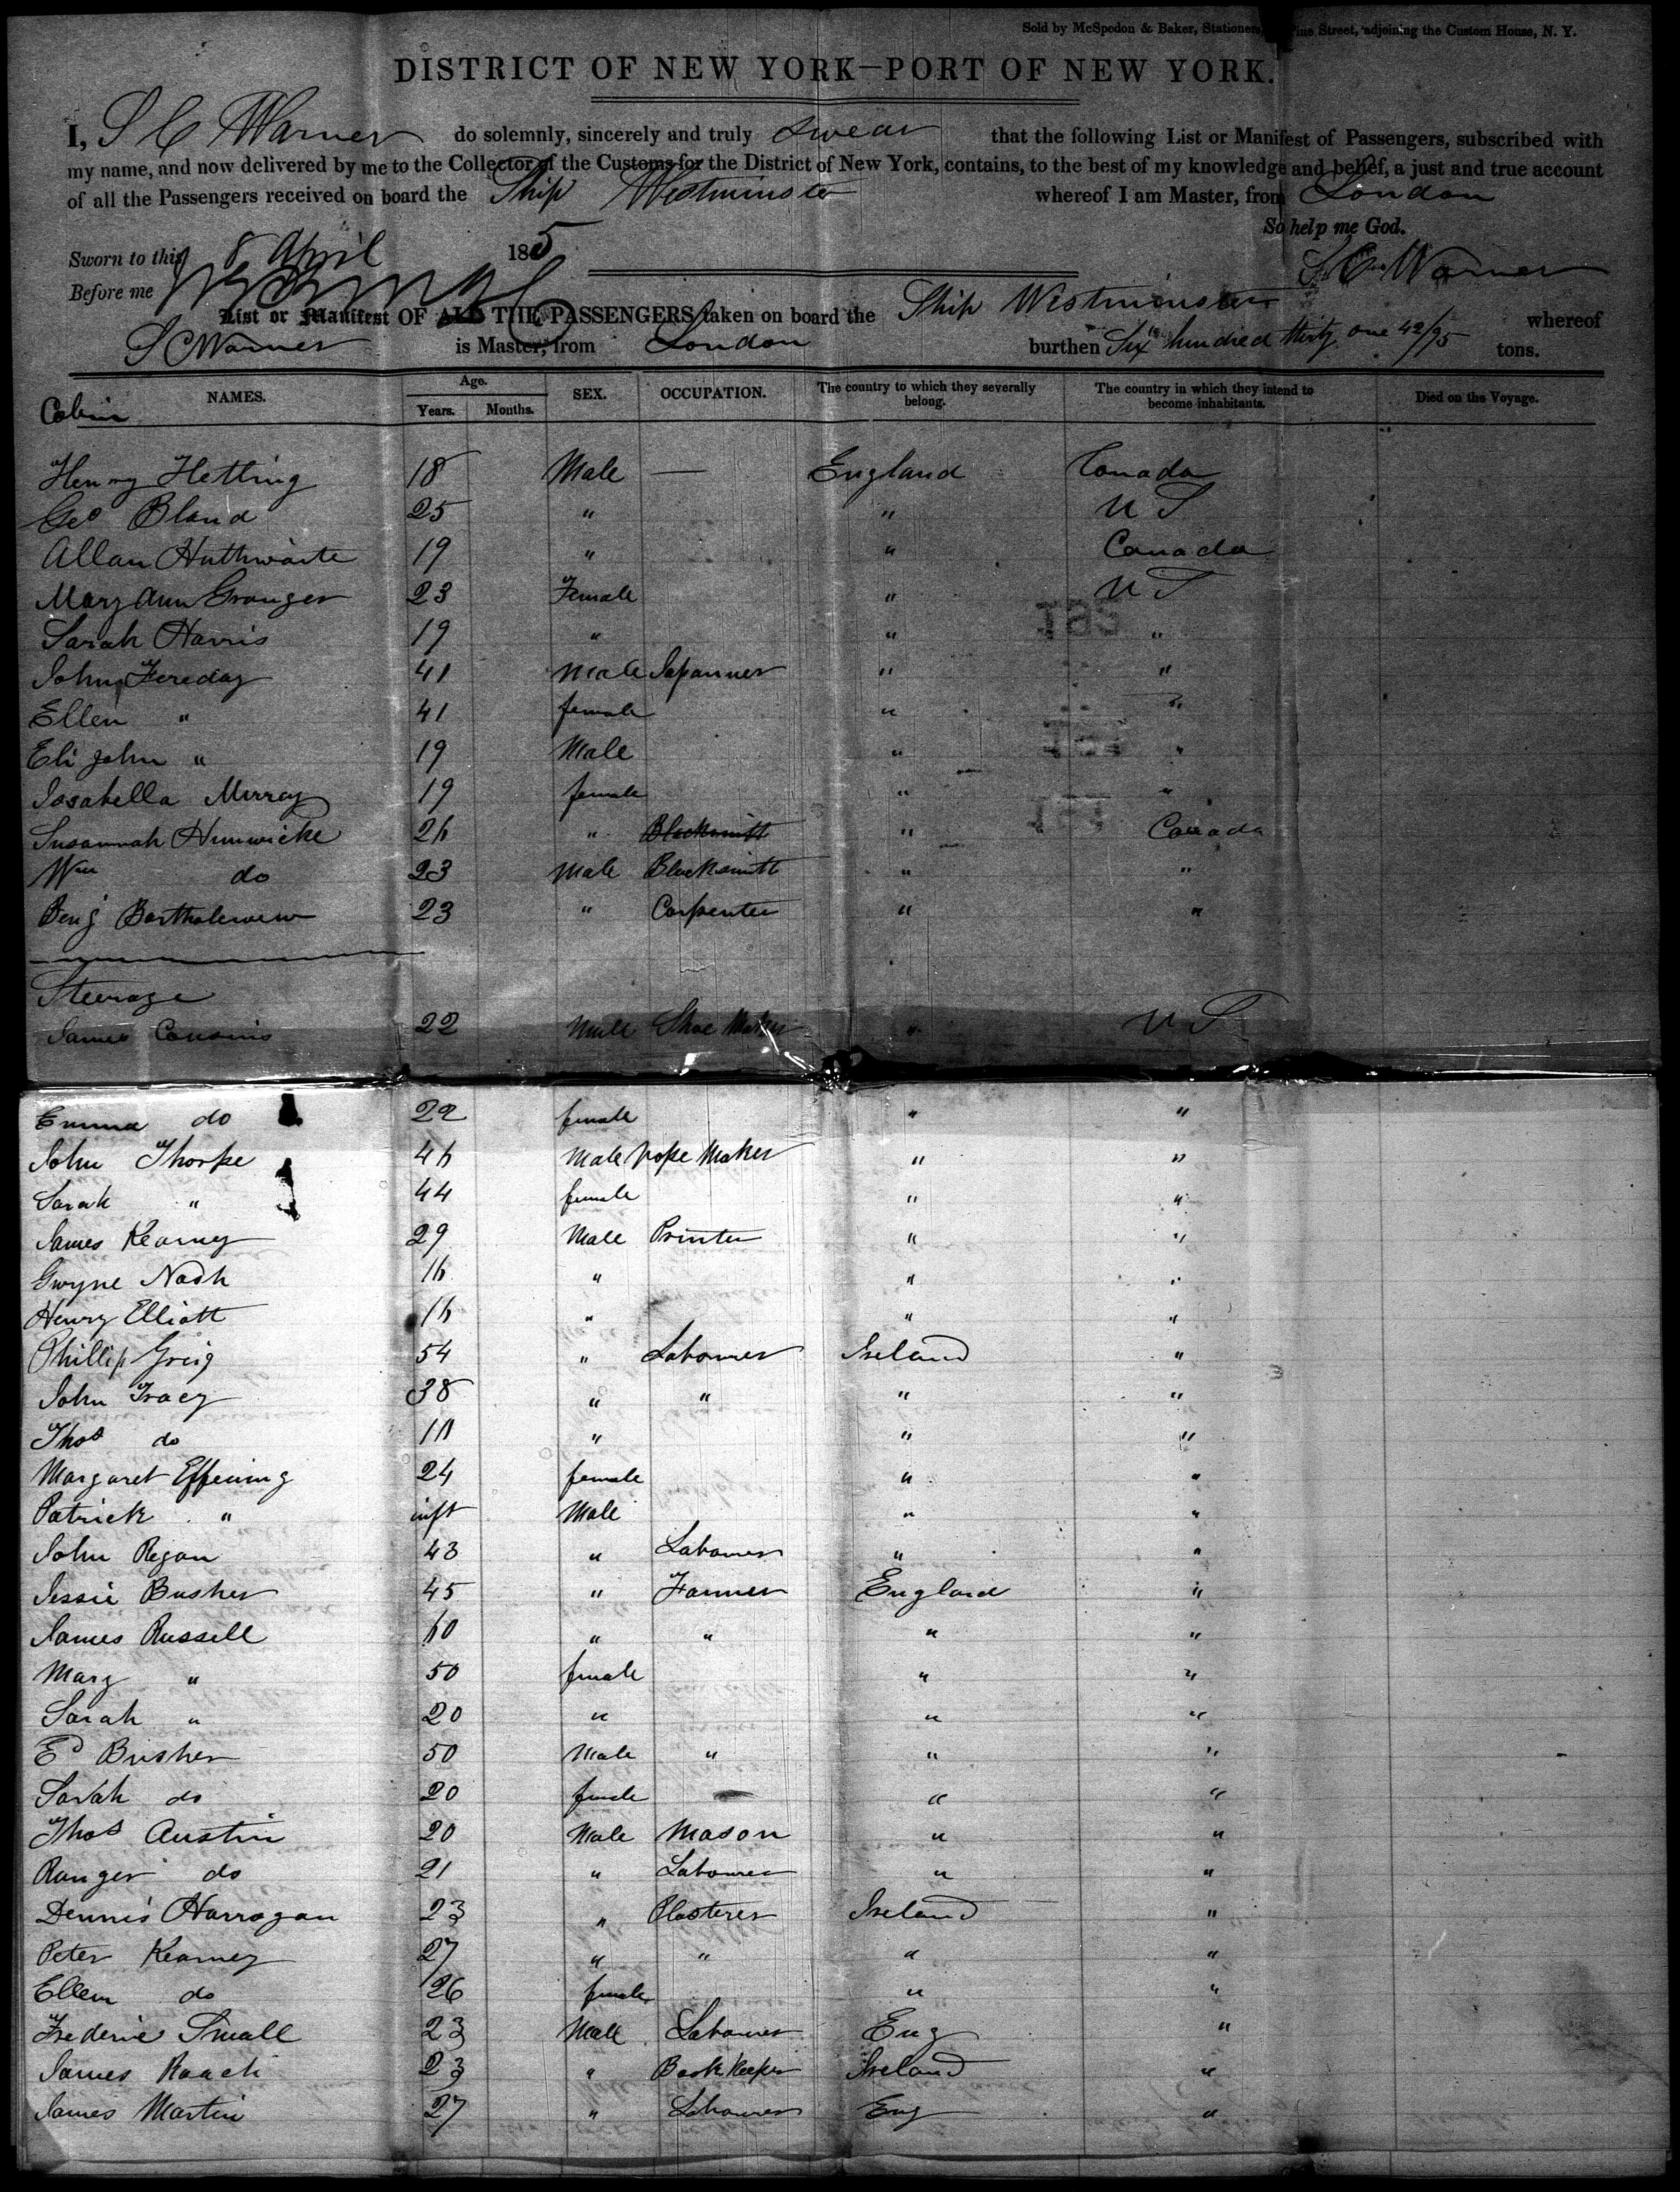 Sold by McSpedon & Baker, Stationers, Pine Street, adjoining the Custom House, N. Y.
DISTRICT OF NEW YORK—PORT OF NEW YORK.
I, S C Warner do solemnly, sincerely and truly swear that the following List or Manifest of Passengers, subscribed with
my name, and now delivered by me to the Collector of the Customs for the District of New York, contains, to the best of my knowledge and belief, a just and true account
of all the Passengers received on board the Ship Westminster whereof I am Master, from London
So help me God.
Sworn to this 8 April 185 S. C. Warner
Before me
List or Manifest OF ALL THE PASSENGERS taken on board the Ship Westminster whereof
S C Warner is Master, from London burthen Six hundred thirty one 42/95 tons.
NAMES. Age. Years. Months. SEX. OCCUPATION. The country to which they severally belong. The country in which they intend to become inhabitants. Died on the Voyage.
Cabin
Henry Hetling 18 Male — England Canada
Geo Bland 25 " " U S
Allan Huthwaite 19 " " Canada
Mary Ann Granger 23 Female " U S
Sarah Harris 19 " " "
John Fereday 41 Male Japanner " "
Ellen " 41 female " "
Eli John " 19 Male " "
Issabella Mirray 19 female " "
Susannah Hunwicke 26 " Blacksmith " Canada
Wm do 23 Male Blacksmith " "
Benj Bartholemew 23 " Carpenter " "
Steerage
James Cousins 22 Male Shoe Maker " U S
Emma do 22 female " "
John Thorpe 46 Male rope Maker " "
Sarah " 44 female " "
James Kearney 29 Male Printer " "
Gwyne Nash 16 " " "
Henry Elliott 16 " " "
Phillip Greig 54 " Labourer Ireland "
John Tracy 38 " " " "
Thos do 10 " " "
Margaret Effering 24 female " "
Patrick " inft Male " "
John Regan 43 " Labourer " "
Jessie Busher 45 " Farmer England "
James Russell 60 " " " "
Mary " 50 female " "
Sarah " 20 " " "
Ed Busher 50 Male " " "
Sarah do 20 female " "
Thos Austin 20 Male Mason " "
Ranger do 21 " Labourer " "
Dennis Harragan 23 " Plasterer Ireland "
Peter Kearney 27 " " " "
Ellen do 26 female " "
Frederic Small 23 Male Labourer Eng "
James Roach 23 " Book Keeper Ireland "
James Martin 27 " Labourer Eng "